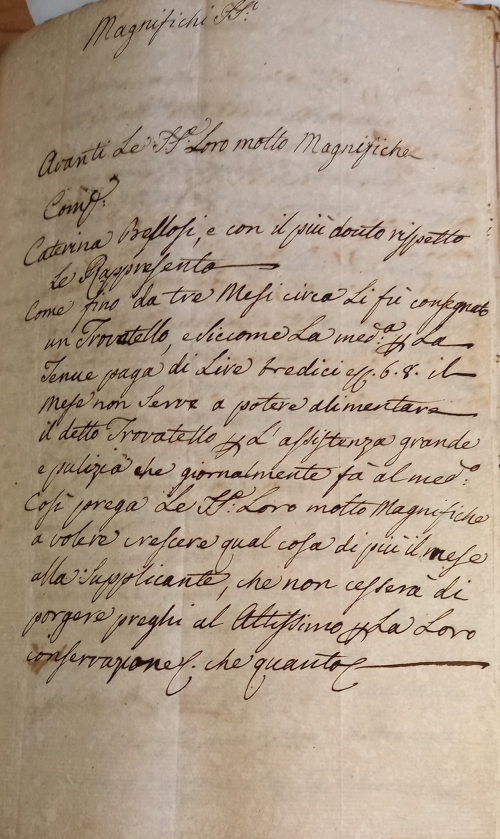 Magnifichi SS.ri
Avanti Le SS.e Loro molto Magnifiche
Comp.e
Caterina Bellosi, e con il più douto rispetto
Le Rappresenta
Come fino da tre Mesi circa Li fù consegnato
un Trovatello, e siccome La med.a p La
Tenue paga di Live tredici e 6.8. il
Mese non Serve a potere alimentare
il detto Trovatello p L'assistenza grande
e pulizia che giornalmente fà al med.o:
Così prega Le SS.e Loro molto Magnifiche
a volere crescere qual cosa di più il mese
alla Supplicante, che non cesserà di
porgere preghi al Altissimo p La Loro
conservazione. che quanto